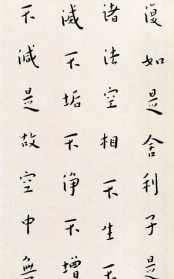 復如是舍利子是
諸法空相不生不
滅不垢不淨不增
不減是故空中無